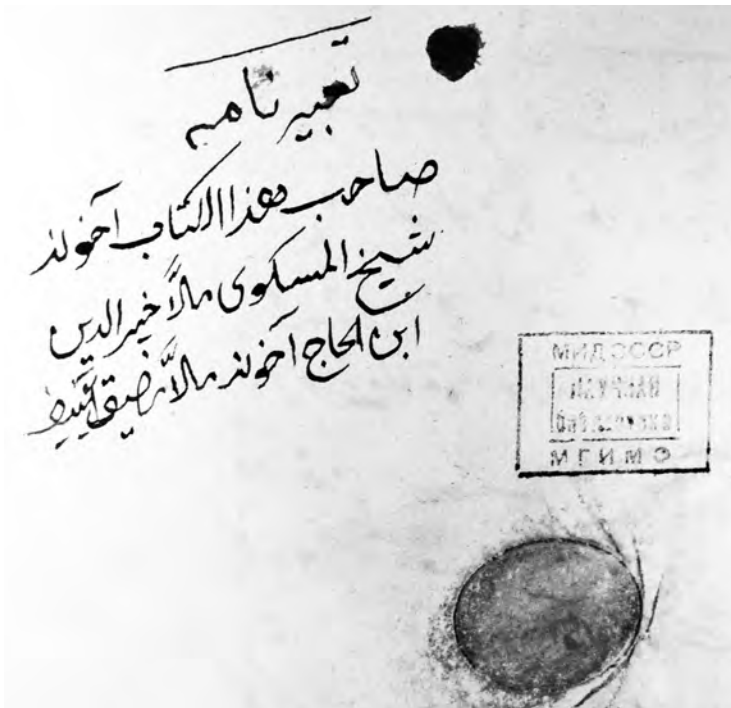 تعبیر نامه
صاحب هذا الکتاب آخوند
شیخ المسکوی ملّا خیر الدین
ابن الحاج آخوند ملّا
МИД СССР
НАУЧНАЯ
библиотека
МГИМО